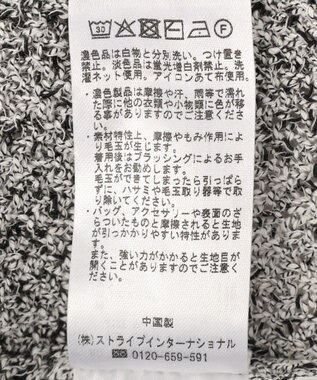 濃色品は白物と分別洗い。つけ置き
禁止。淡色品は蛍光増白剤禁止。洗
濯ネット使用。アイロンあて布使用。
・濃色製品は摩擦や汗、雨等で濡れ
た際に他の衣類や小物類に色が移
る事がありますのでご注意くださ
い。
・素材特性上、摩擦やもみ作用によ
り毛玉が生じます。
着用後はブラッシングによるお手
入れをお勧めします。
毛玉ができてしまったら引っぱら
ずに、ハサミや毛玉取り器等で取
り除いてください。
・バッグ、アクセサリーや表面のざ
らついたものと摩擦されると生地
が引っかかりやすい特性がありま
す。
また、強い力がかかると生地目が
開くことがありますのでご注意
ください。
中国製
(株)ストライプインターナショナル
☎0120-659-591